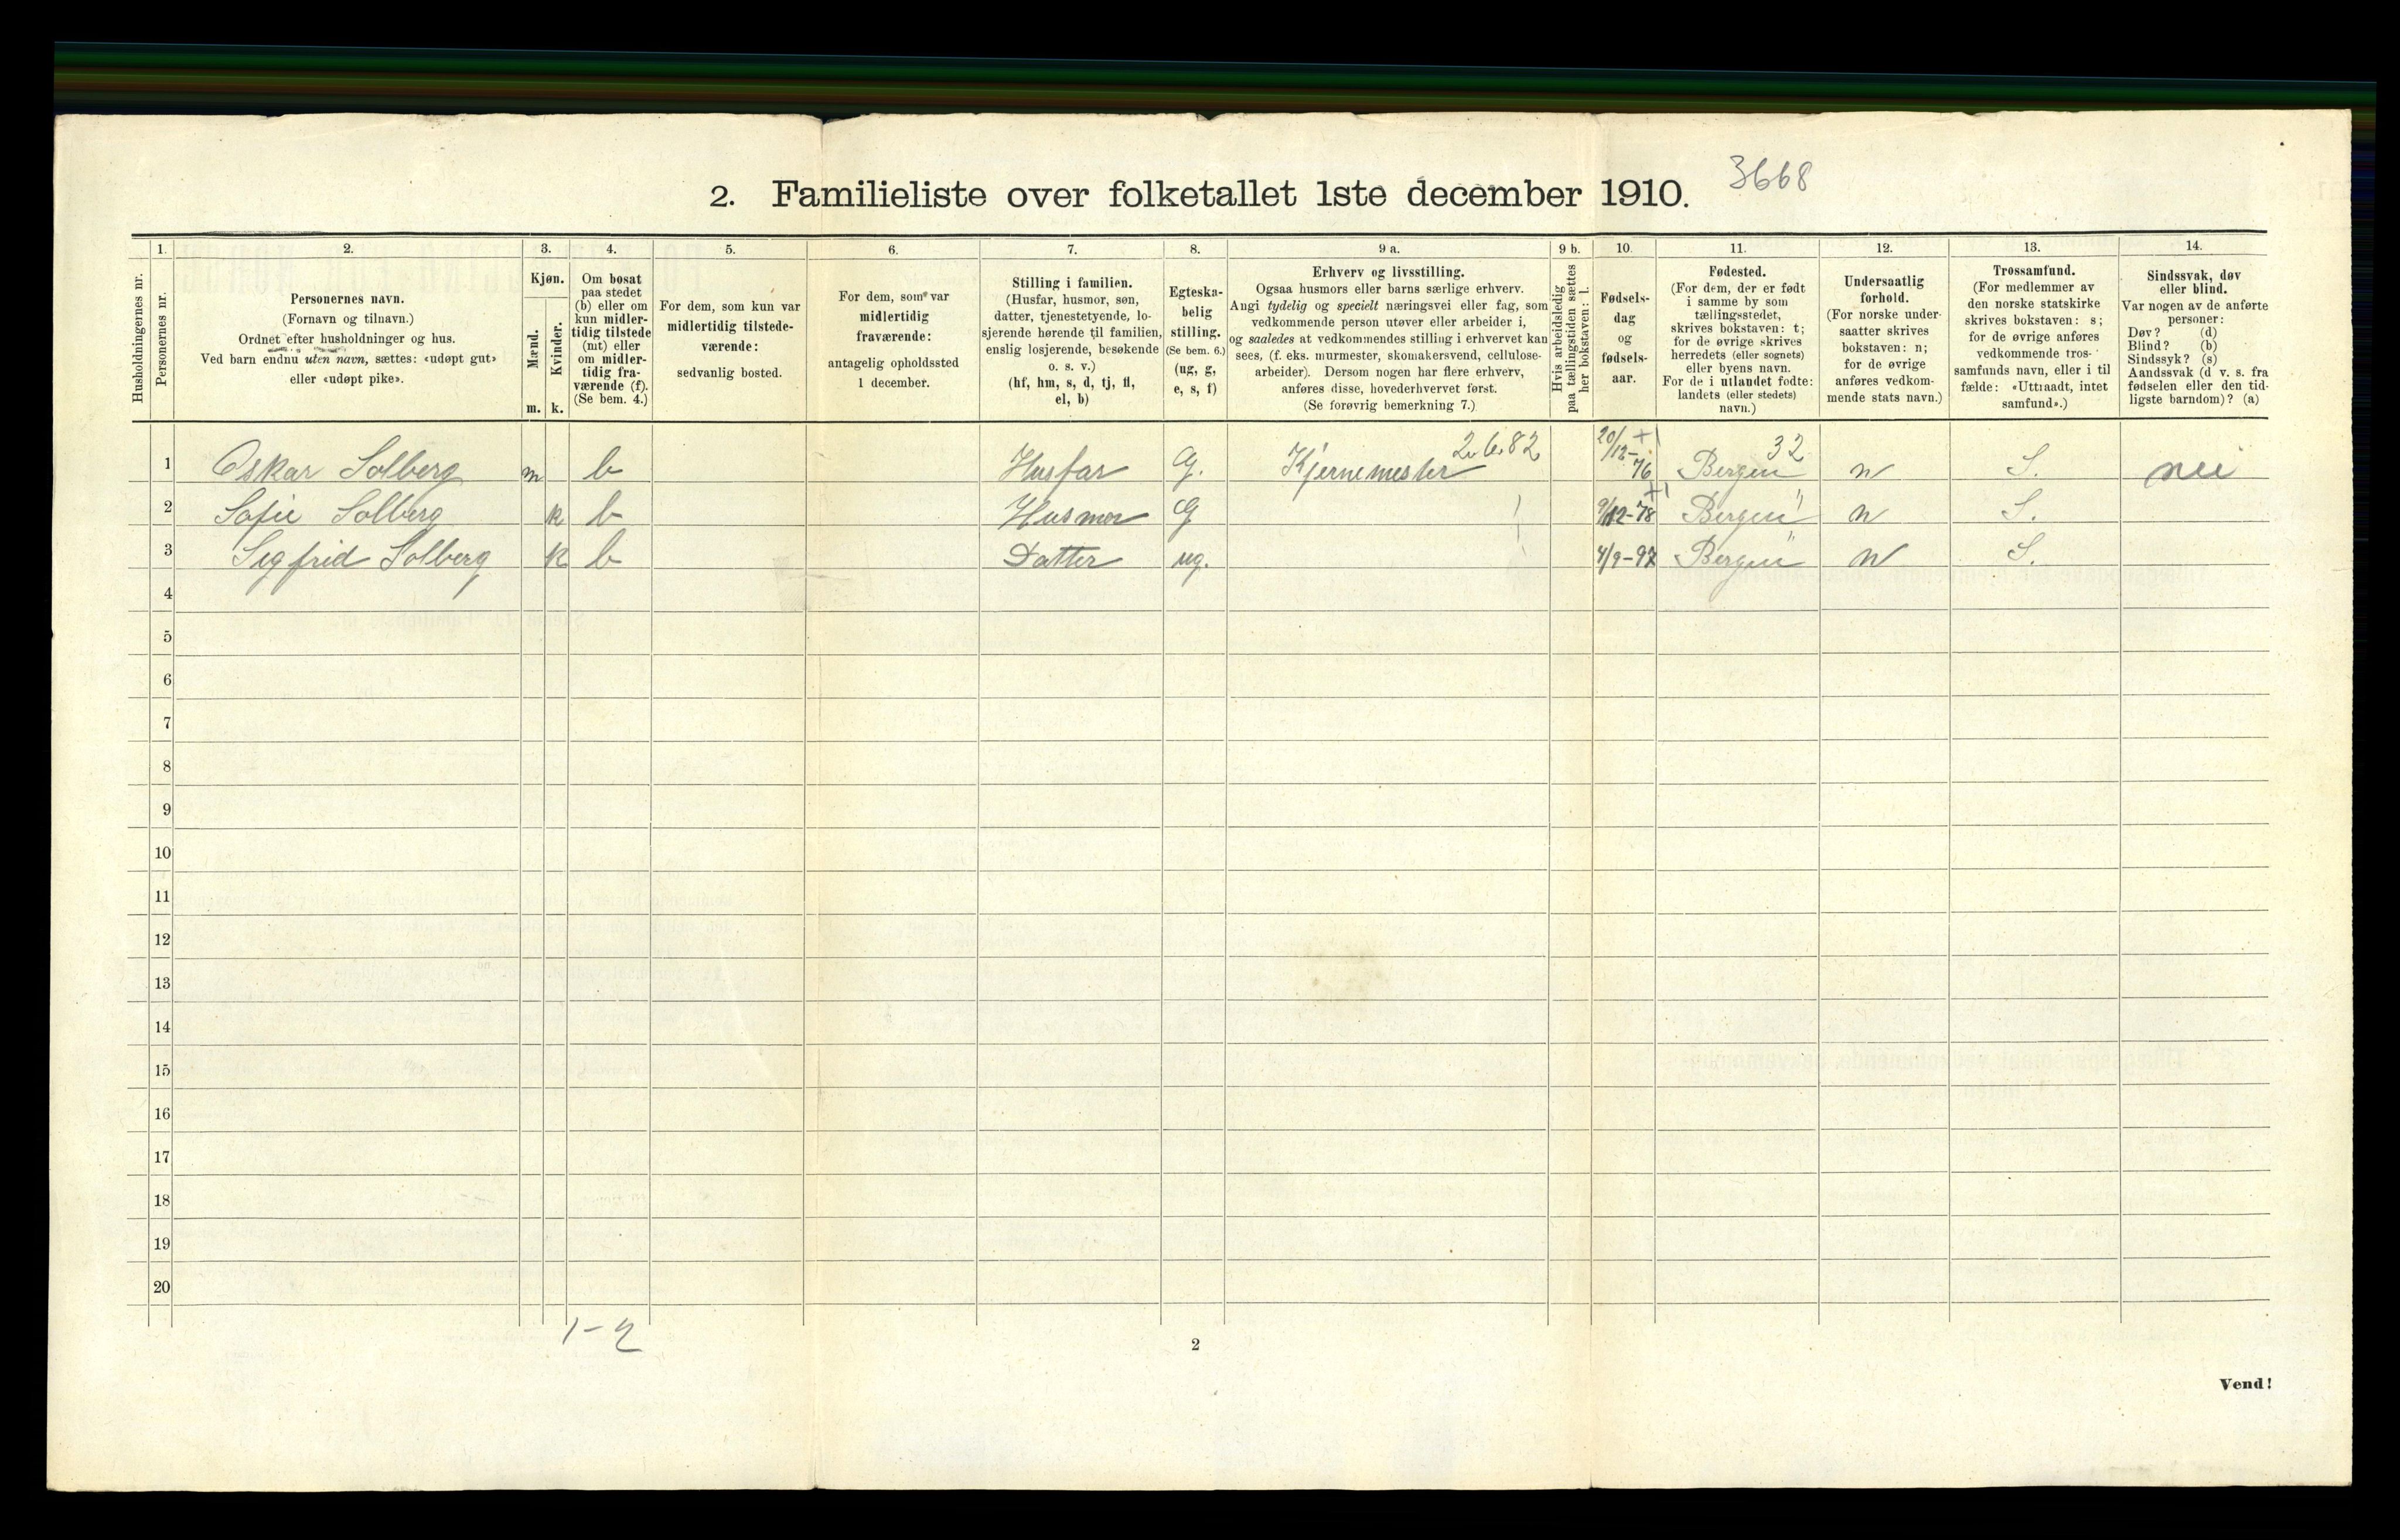 3668
2. Familieliste over folketallet 1ste december 1910.
1. 2. 3. 4. 5. 6. 7. 8. 9 a. 9 b. 10. 11. 12. 13. 14.
Husholdningernes nr.
Personernes nr.
Personernes navn.
(Fornavn og tilnavn.)
Ordnet efter husholdninger og hus.
Ved barn endnu uten navn, sættes: «udøpt gut»
eller «udøpt pike».
Kjøn.
Mænd.
Kvinder.
m. k.
Om bosat
paa stedet
(b) eller om
kun midler-
tidig tilstede
(mt) eller
om midler-
tidig fra-
værende (f).
(Se bem. 4.)
For dem, som kun var
midlertidig tilstede-
værende:
sedvanlig bosted.
For dem, som var
midlertidig
fraværende:
antagelig opholdssted
1 december.
Stilling i familien.
(Husfar, husmor, søn,
datter, tjenestetyende, lo-
sjerende hørende til familien,
enslig losjerende, besøkende
o. s. v.)
(hf, hm, s, d, tj, fl,
el, b)
Egteska-
belig
stilling.
(Se bem. 6.)
(ug, g,
e, s, f)
Erhverv og livsstilling.
Ogsaa husmors eller barns særlige erhverv.
Angi tydelig og specielt næringsvei eller fag, som
vedkommende person utøver eller arbeider i,
og saaledes at vedkommendes stilling i erhvervet kan
sees, (f. eks. murmester, skomakersvend, cellulose-
arbeider). Dersom nogen har flere erhverv,
anføres disse, hovederhvervet først.
(Se forøvrig bemerkning 7.)
Hvis arbeidsledig
paa tællingstiden sættes
her bokstaven: l.
Fødsels-
dag
og
fødsels-
aar.
Fødested.
(For dem, der er født
i samme by som
tællingsstedet,
skrives bokstaven: t;
for de øvrige skrives
herredets (eller sognets)
eller byens navn.
For de i utlandet fødte:
landets (eller stedets)
navn.)
Undersaatlig
forhold.
(For norske under-
saatter skrives
bokstaven: n;
for de øvrige
anføres vedkom-
mende stats navn.)
Trossamfund.
(For medlemmer av
den norske statskirke
skrives bokstaven: s;
for de øvrige anføres
vedkommende tros-
samfunds navn, eller i til-
fælde: «Uttraadt, intet
samfund».)
Sindssvak, døv
eller blind.
Var nogen av de anførte
personer:
Døv? (d)
Blind? (b)
Sindssyk? (s)
Aandssvak (d v. s. fra
fødselen eller den tid-
ligste barndom)? (a)
2.6.82 20/12- +1 32
1 Oskar Solberg m b Husfar G. Kjernemester 76 Bergen n S. nei
2 Sofie Solberg k b Husmor G 9/12-78 +1 Bergen n S.
3 Sigfrid Solberg k b Datter ug. 4/9-97 Bergen n S.
4
5
6
7
8
9
10
11
12
13
14
15
16
17
18
19
20
1-2
2
Vend!